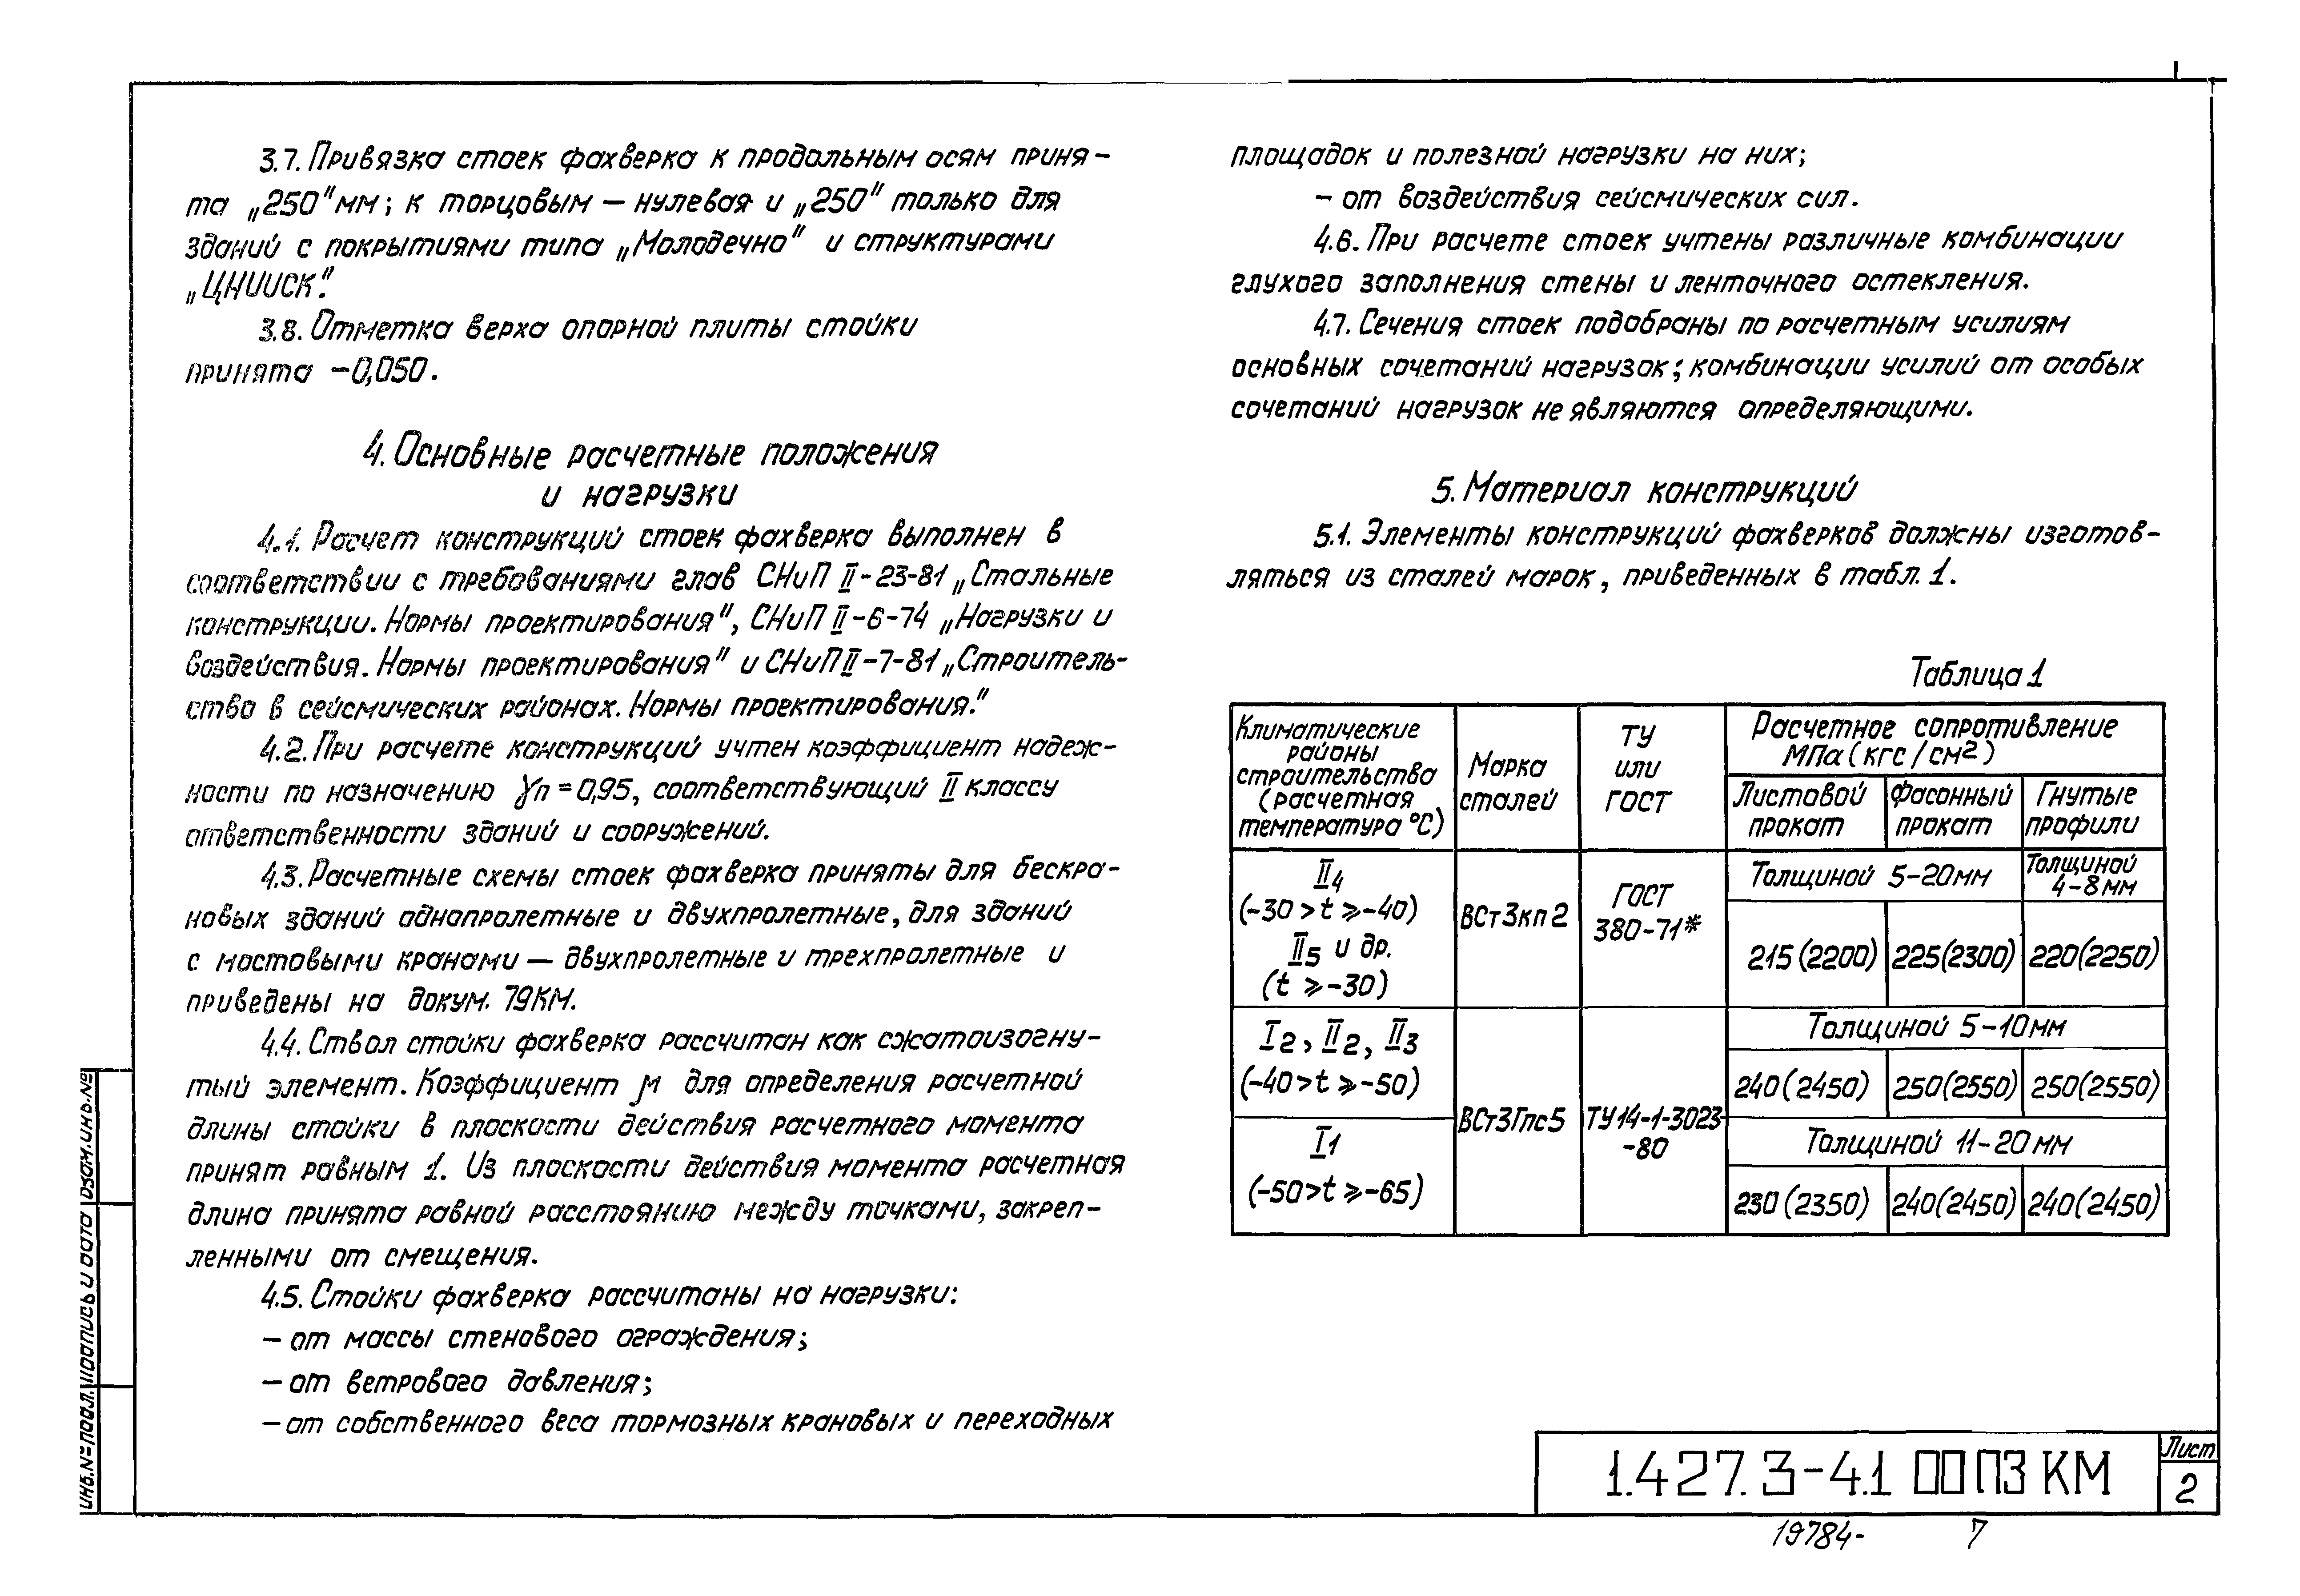 3.7. Привязка стоек фахверка к продольным осям приня-
та „250" мм; к торцовым — нулевая и „250" только для
зданий с покрытиями типа „Молодечно" и структурами
„ЦНИИСК".
3.8. Отметка верха опорной плиты стойки
принята -0,050.
4. Основные расчетные положения
и нагрузки
4.1. Расчет конструкций стоек фахверка выполнен в
соответствии с требованиями глав СНиП II-23-81 „Стальные
конструкции. Нормы проектирования", СНиП II-6-74 „Нагрузки и
воздействия. Нормы проектирования" и СНиП II-7-81 „Строитель-
ство в сейсмических районах. Нормы проектирования."
4.2. При расчете конструкций учтен коэффициент надеж-
ности по назначению γп = 0,95, соответствующий II классу
ответственности зданий и сооружений.
4.3. Расчетные схемы стоек фахверка приняты для бескра-
новых зданий однопролетные и двухпролетные, для зданий
с мостовыми кранами — двухпролетные и трехпролетные и
приведены на докум. 79КМ.
4.4. Ствол стойки фахверка рассчитан как сжатоизогну-
тый элемент. Коэффициент μ для определения расчетной
длины стойки в плоскости действия расчетного момента
принят равным 1. Из плоскости действия момента расчетная
длина принята равной расстоянию между точками, закреп-
ленными от смещения.
4.5. Стойки фахверка рассчитаны на нагрузки:
- от массы стенового ограждения;
- от ветрового давления;
- от собственного веса тормозных крановых и переходных
площадок и полезной нагрузки на них;
- от воздействия сейсмических сил.
4.6. При расчете стоек учтены различные комбинации
глухого заполнения стены и ленточного остекления.
4.7. Сечения стоек подобраны по расчетным усилиям
основных сочетаний нагрузок; комбинации усилий от особых
сочетаний нагрузок не являются определяющими.
5. Материал конструкций
5.1. Элементы конструкций фахверков должны изготов-
ляться из сталей марок, приведенных в табл. 1.
Таблица 1
Климатические
районы
строительства
(расчетная
температура °С)
Марка
сталей
ТУ
или
ГОСТ
Расчетное сопротивление
МПа (кгс/см²)
Листовой
прокат
Фасонный
прокат
Гнутые
профили
II4
(-30 > t ⩾ -40)
II5 и др.
(t ⩾ -30)
ВСт3кп2
ГОСТ
380-71*
Толщиной 5-20мм
Толщиной
4-8мм
215 (2200) 225(2300) 220(2250)
I2, II2, II3
(-40 > t ⩾ -50)
I1
(-50 > t ⩾ -65)
ВСт3Гпс5
ТУ14-1-3023-
-80
Толщиной 5-10мм
240 (2450) 250(2550) 250(2550)
Толщиной 11-20мм
230 (2350) 240(2450) 240(2450)
Инв.№ подл. Подпись и дата Взам.инв.№
1.427.3-4.1 00ПЗ КМ
Лист
2
19784- 7